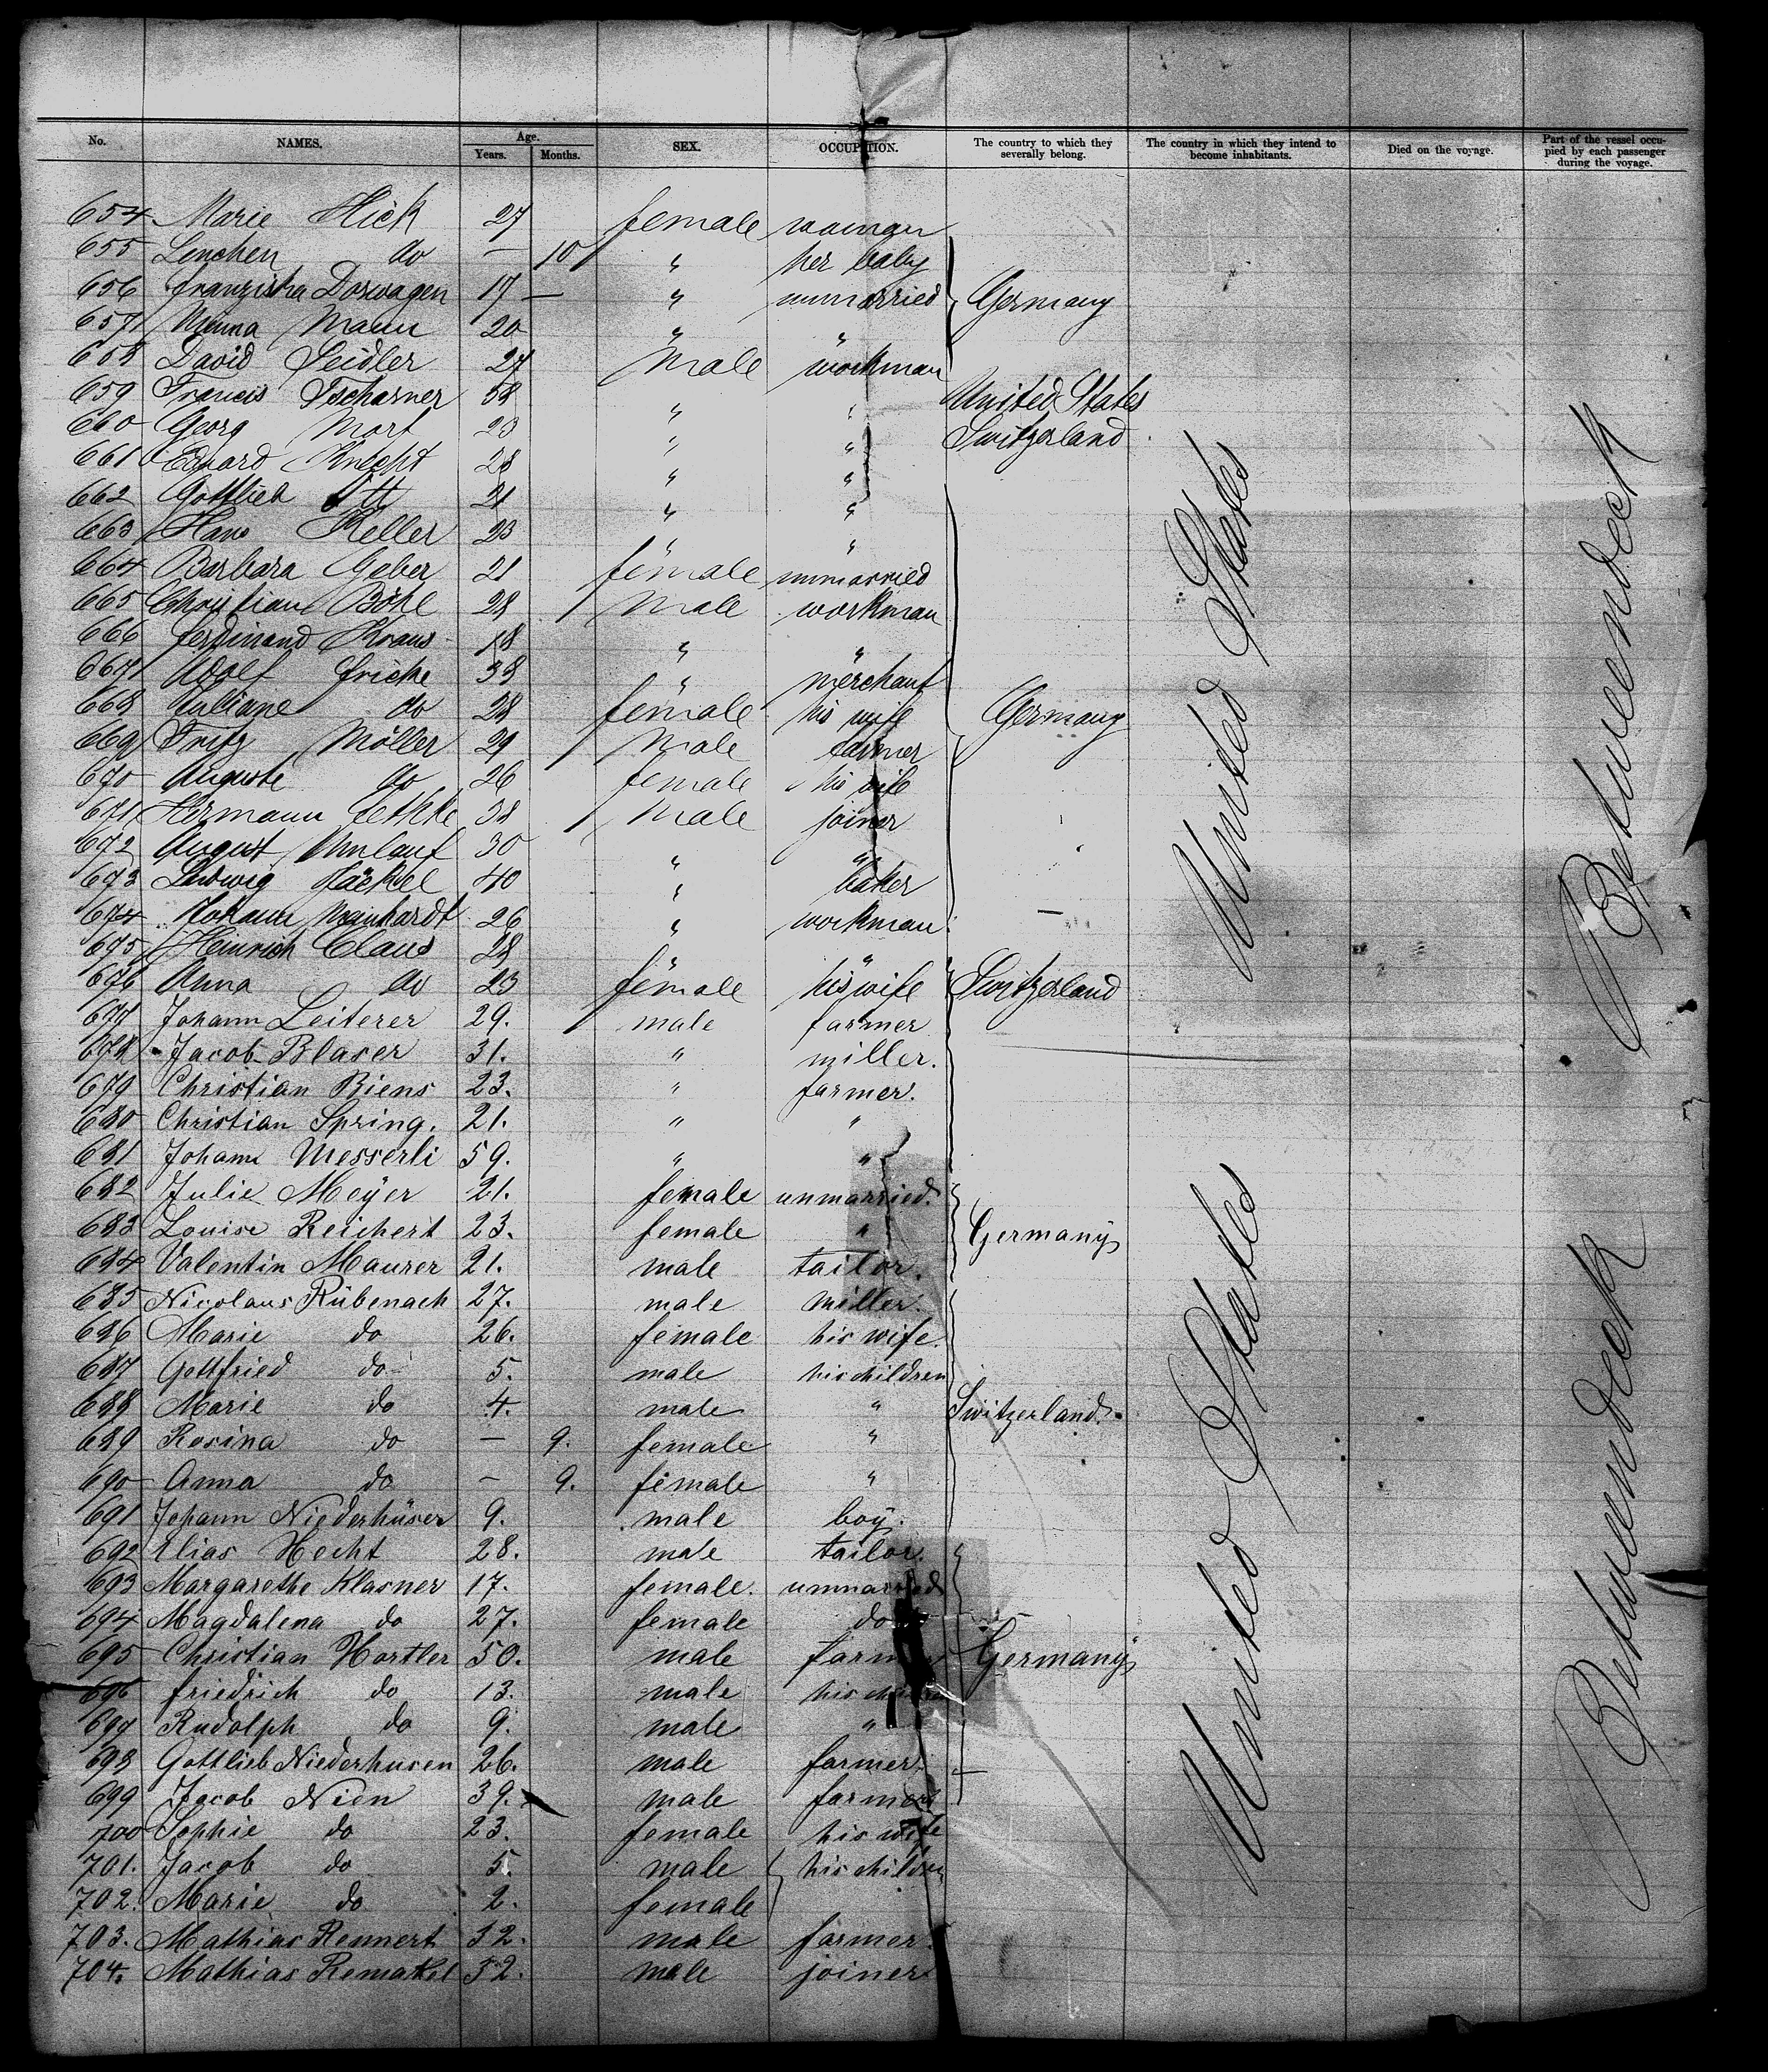 No. NAMES. Age. Years. Months. SEX. OCCUPATION. The country to which they severally belong. The country in which they intend to become inhabitants. Died on the voyage. Part of the vessel occupied by each passenger during the voyage.
654 Marie Hick 27 female woman
655 Lenchen do — 10 " her baby
656 Franziska Dorwagen 17 — " unmarried Germany
657 Minna Mann 20 " "
658 David Seidler 27 Male workman
659 Francis Tscharner 58 " " United States
660 Georg 23 " " Switzerland
661 Eduard Knecht 28 " "
662 Gottlieb Ott 21 " "
663 Hans Keller 23 " "
664 Barbara Geber 21 female unmarried
665 Christian Böhl 28 Male workman
666 Ferdinand Kraus 18 " "
667 Adolf Fricke 38 " merchant
668 Juliane do 28 female his wife Germany
669 Fritz Möller 29 Male farmer
670 Auguste do 26 female his wife
671 Hermann Jethke 38 Male joiner
672 August Umlauf 30 " "
673 Ludwig Jäckel 40 " baker
674 Johann Mainhardt 26 " workman
675 Heinrich Claus 28 " "
676 Anna do 23 female his wife Switzerland
677 Johann Leiterer 29. male farmer
678 Jacob Blaser 31. " miller.
679 Christian Riens 23. " farmer.
680 Christian Spring. 21. " "
681 Johann Messerli 59. " "
682 Julie Meÿer 21. female unmarried.
683 Louise Reichert 23. female " Germanÿ
684 Valentin Maurer 21. male tailor.
685 Nicolaus Rübenach 27. male miller.
686 Marie do 26. female his wife.
687 Gottfried do 5. male his children
688 Marie do 4. male " Switzerland.
689 Rosina do — 9. female "
690 Anna do — 9. female "
691 Johann Niederhüser 9. male boÿ.
692 Elias Hecht 28. male tailor.
693 Margarethe Klasner 17. female. unmarried
694 Magdalena do 27. female do
695 Christian Hortler 50. male farmer Germanÿ
696 Friedrich do 13. male his children
697 Rudolph do 9. male "
698 Gottlieb Niederhusen 26. male farmer.
699 Jacob Nien 39. male farmer
700 Sophie do 23. female his wife
701. Jacob do 5. male his children
702. Marie do 2. female
703. Mathias Rennert 32. male farmer.
704. Mathias Remakel 52. male joiner
United States
Betweendeck
United States
Betweendeck